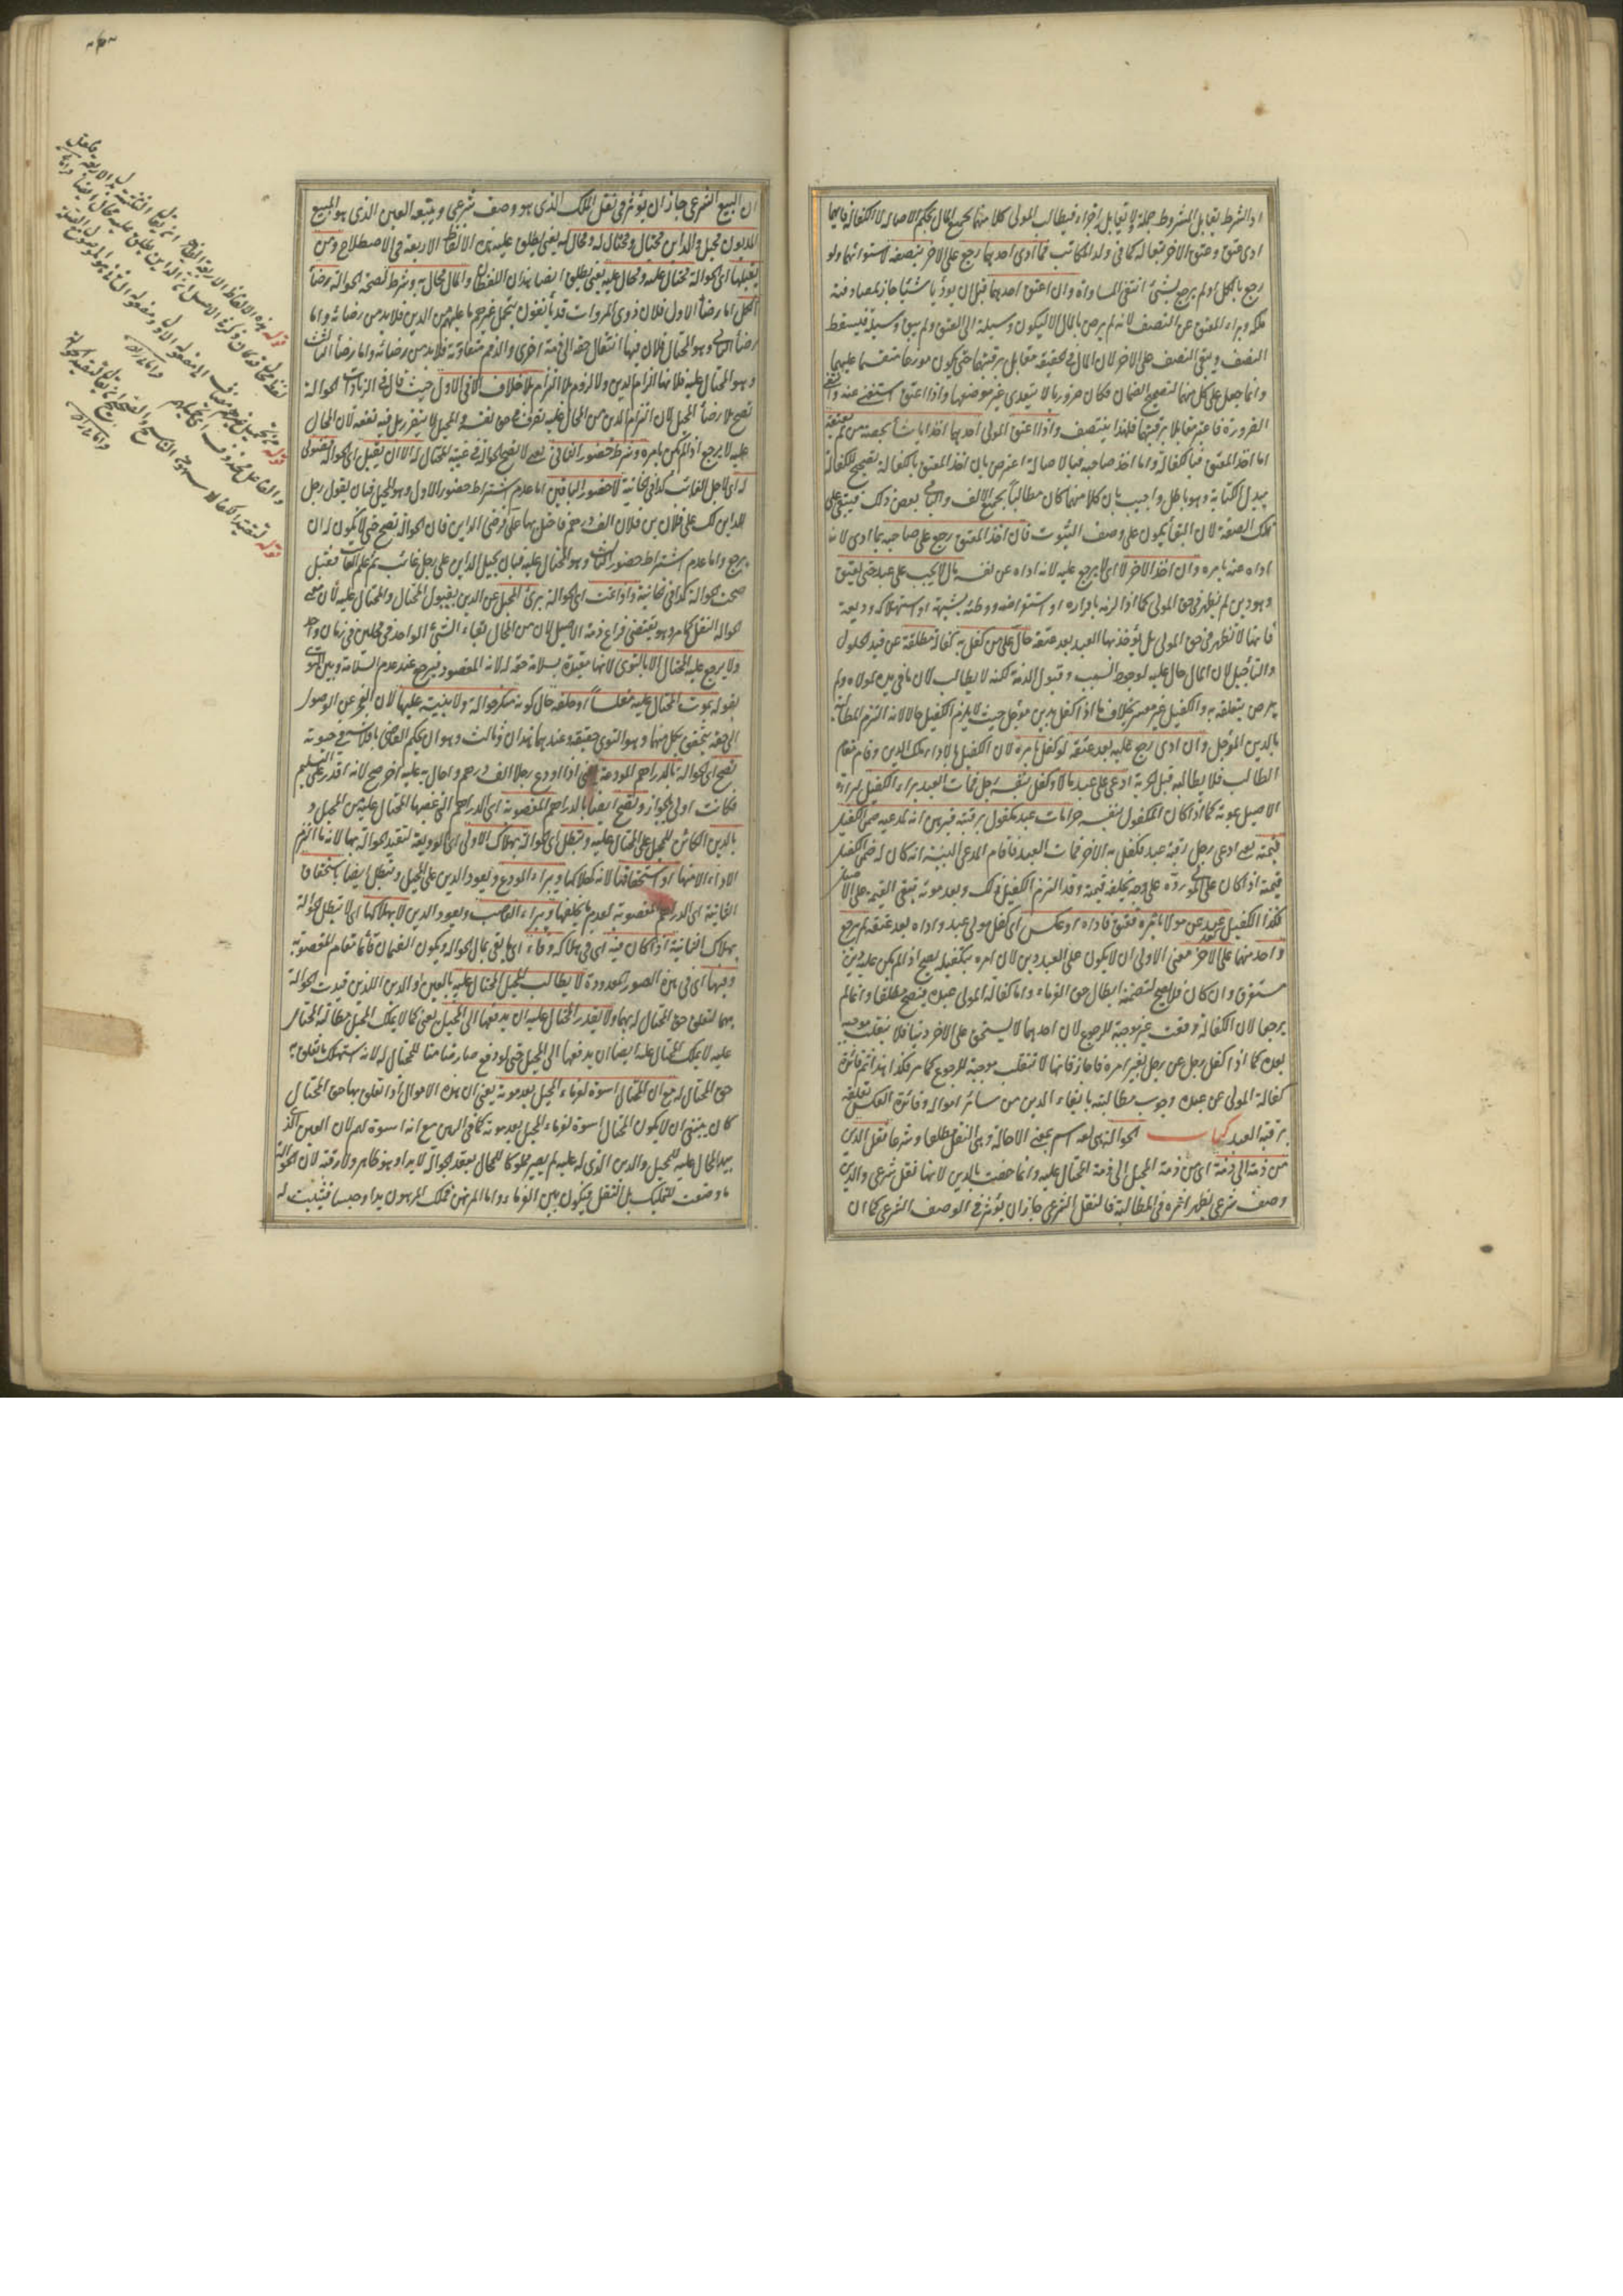 اذ الشرط يقابل المشروط جملة ولا يقابل اجزاءه فيطالب المولى كلا منهما بجميع المال بحكم الاصالة لا الكفالة فايهما
ادى عتق وعتق الاخر تبعا له كما فى ولد المكاتب فما ادى احدهما رجع على الاخر بنصفه لاستوائهما ولو
رجع بالكل او لم يرجع بشئ انتفى المساواة وان اعتق احدهما قبل ان يؤديا شيئا جاز لمصادفته
ملكه وبراء المعتق عن النصف لانه لم يرض بالمال الا ليكون وسيلة الى العتق ولم يبق وسيلة فيسقط
النصف ويبقى النصف على الاخر لان المال فى الحقيقة مقابل برقبتهما حتى يكون موزعا منقسما عليهما
وانما جعل على كل منهما لتصحيح الضمان فكان ضروريا لا يتعدى غير موضعها واذا اعتق استغنى عنه وانتفى
الضرورة فاعتبر مقابلا برقبتهما فلهذا يتنصف واذا اعتق المولى احدهما اخذ ايا شاء بحصة من لم يعتقه
اما اخذ المعتق فبالكفالة واما اخذ صاحبه فبالاصالة اعترض بان اخذ المعتق بالكفالة تصحيح للكفالة
ببدل الكتابة وهو باطل واجيب بان كلا منهما كان مطالبا بجميع الالف والباقى بعض ذلك فيبقى على
تلك الصفة لان البقاء يكون على وصف الثبوت فان اخذ المعتق رجع على صاحبه بما ادى لانه
اداه عنه بامره وان اخذ الاخر لا اى لا يرجع عليه لانه اداه عن نفسه مال لا يجب على عبد حتى يعتق
وهو دين لم يظهر فى حق المولى كما اذا لزمه باقراره او استقراضه ووطئه بشبهة او استهلاكه وديعة
فانها لا تظهر فى حق المولى بل يؤخذ بها العبد بعد عتقه حال على من كفل به كفالة مطلقة عن قيد الحلول
والتأجيل لان المال حال عليه لوجود السبب وقبول الذمة لكنه لا يطالب لان ما فى يده لمولاه ولم
يرض بتعلقه به والكفيل غير معسر بخلاف ما اذا كفل بدين مؤجل حيث لا يلزم الكفيل حالا لانه التزم المطالبة
بالدين المؤجل وان ادى رجع عليه بعد عتقه لو كفل بامره لان الكفيل بالاداء ملك الدين وقام مقام
الطالب فلا يطالبه قبل الحرية ادعى على عبد مالا وكفل بنفسه رجل فمات العبد براء الكفيل لبراءة
الاصيل بموته كما اذا كان المكفول بنفسه حرا مات عبد مكفول برقبته فبرهن انه لمدعيه ضمن الكفيل
قيمته يعنى ادعى رجل رقبة عبد فكفل به الاخر فمات العبد فاقام المدعى البينة انه كان له ضمن الكفيل
قيمته اذ كان على المولى رده على وجه يخلفه قيمته وقد التزم الكفيل ذلك وبعد موته تبقى القيمة على الاصيل
فكذا الكفيل عبد كفل عن مولاه بامره فعتق فاداه او عكس اى كفل مولى عبده واداه بعد عتقه لم يرجع
واحد منهما على الاخر معنى الاولى ان لا يكون على العبد دين لان امره بتكفيله يصح اذ لم يكن عليه دين
مستغرق وان كان فلا يصح لتضمنه ابطال حق الغرماء واما كفالة المولى عبده فتصح مطلقا وانما لم
يرجعا لان الكفالة وقعت غير موجبة للرجوع لان احدهما لا يستحق على الاخر دينا فلا تنقلب موجبة
بعده كما اذا كفل رجل عن رجل بغير امره فاجاز فانها لا تنقلب موجبة للرجوع كما مر فكذا هذا ثم فائدة
كفالة المولى عن عبده وجوب مطالبته بايفاء الدين من سائر امواله وفائدة العكس تعلقه
برقبة العبد كتاب الحوالة هى لغة اسم بمعنى الاحالة وهى النقل مطلقا وشرعا نقل الدين
من ذمة الى ذمة اى من ذمة المحيل الى ذمة المحتال عليه وانما خصت بالدين لانها نقل شرعى والدين
وصف شرعى يظهر اثره فى المطالبة فالنقل الشرعى جاز ان يؤثر فى الوصف الشرعى كما ان
ان البيع الشرعى جاز ان يؤثر فى نقل الملك الذى هو وصف شرعى ويتبعه العين الذى هو المبيع
المديون محيل والداين محتال ومحتال له ومحال له يعنى يطلق عليه هذه الالفاظ الاربعة فى الاصطلاح ومن
يقبلها اى الحوالة محتال عليه ومحال عليه يعنى يطلق ايضا هذان اللفظان والمال محال به وشرط لصحة الحوالة رضاء
الكل اما رضاء الاول فلان ذوى المروات قد يأنفون بتحمل غيرهم ما عليهم من الدين فلا بد من رضائه واما
رضاء الثانى وهو المحتال فلان فيها انتقال حقه الى ذمة اخرى والذمم متفاوتة فلا بد من رضائه واما رضاء الثالث
وهو المحتال عليه فلانها الزام الدين ولا لزوم بلا التزام بلا خلاف الا فى الاول حيث قال فى الزيادات الحوالة
تصح بلا رضاء المحيل لان التزام الدين من المحال عليه تصرف فى حق نفسه والمحيل لا يتضرر بل فيه نفعه لان المحال
عليه لا يرجع اذا لم يكن بامره وشرط حضور الثانى يعنى لا تصح الحوالة فى غيبة المحتال له الا ان يقبل اى الحوالة فضولى
له اى لاجل الغائب كذا فى الخانية لا حضور الباقيين اما عدم اشتراط حضور الاول وهو المحيل فبان يقول رجل
للداين لك على فلان بن فلان الف درهم فاحتل بها على فرضى الداين فان الحوالة تصح حتى لا يكون له ان
يرجع واما عدم اشتراط حضور الثالث وهو المحتال عليه فبان يحيل الداين على رجل غائب ثم علم الغائب فقبل
صحت الحوالة كذا فى الخانية واذا تمت اى الحوالة برئ المحيل عن الدين بقبول المحتال والمحتال عليه لان معنى
الحوالة النقل كما مر وهو يقتضى فراغ ذمة الاصيل لان من المحال بقاء الشئ الواحد فى محلين فى زمان واحد
ولا يرجع عليه المحتال الا بالتوى لانها مقيدة بسلامة حقه له لانه المقصود فيرجع عند عدم السلامة وبين التوى
بقوله بموت المحتال عليه مفلسا او حلفه حال كونه منكر حوالة ولا بينة عليها لان العجز عن الوصول
الى حقه يتحقق بكل منهما وهو التوى حقيقة وعندهما هذان وثالث وهو ان يحكم القاضى بافلاسه فى حيوته
تصح اى الحوالة بالدراهم المودعة يعنى اذا اودع رجلا الف درهم واحال به عليه اخر صح لانه اقدر على التسليم
فكانت اولى بالجواز وتصح ايضا بالدراهم المغصوبة اى الدراهم التى غصبها المحتال عليه من المحيل و
بالدين الكائن للمحيل على المحتال عليه وتبطل اى الحوالة بهلاك الاولى اى الوديعة لتقيد الحوالة بها لانه ما التزم
الاداء الا منها او استحقاقها لانه كهلاكها ويبراء المودع ويعود الدين على المحيل وتبطل ايضا باستحقاق
الثانية اى الدراهم المغصوبة لعدم ما يخلفها ويبراء الغاصب ويعود الدين لا بهلاكها اى لا تبطل الحوالة
بهلاك الثانية اذا كان فيه اى فى هلاكه وفاء اى يفى بمال الحوالة ويكون الضمان قائما مقام المغصوبة
وفيها اى فى هذه الصور المعدودة لا يطالب المحيل المحتال عليه بالعين او الدين اللذين قيدت الحوالة
بهما لتعلق حق المحتال له بهما ولا يقدر المحتال عليه ان يدفعها الى المحيل يعنى كما لا يملك المحيل مطالبة المحتال
عليه لا يملك المحتال عليه ايضا ان يدفعها الى المحيل حتى لو دفع صار ضامنا للمحتال له لانه استهلك ما تعلق به
حق المحتال له مع ان المحتال اسوة لغرماء المحيل بعد موته يعنى ان هذه الاموال اذا تعلق بها حق المحتال
كان ينبغى ان لا يكون المحتال اسوة لغرماء المحيل بعد موته كما فى الرهن مع انه اسوة لهم لان العين الذى
بيد المحال عليه للمحيل والدين الذى له عليه لم يصير مملوكا للمحال بعقد الحوالة لا يدا وهو ظاهر ولا رقبة لان الحوالة
ما وضعت للتمليك بل للنقل فيكون بين الغرماء واما المرتهن فملك المرهون يدا وحبسا فيثبت له